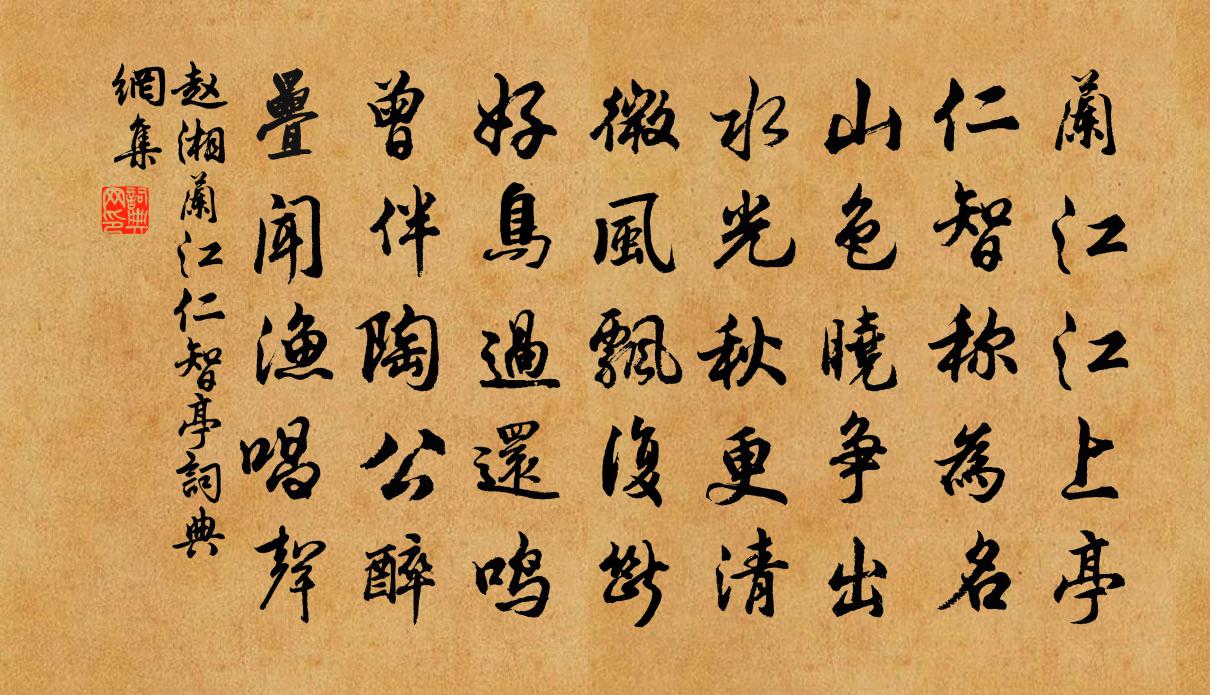 蘭江江上亭
仁智称為名
山色曉争出
水光秋更清
微風飄復斷
好鳥過還鳴
曾伴陶公醉
疊聞漁唱聲
赵湘蘭江仁智亭詞典
網集
詞典
网印